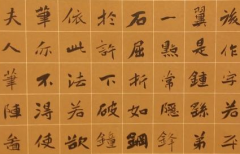 作字若平
翼是鍾繇弟
一點常隱鋒
石屈折如鋼
於許下破鍾
依此法若欲
筆亦不得使
夫人筆陣圖